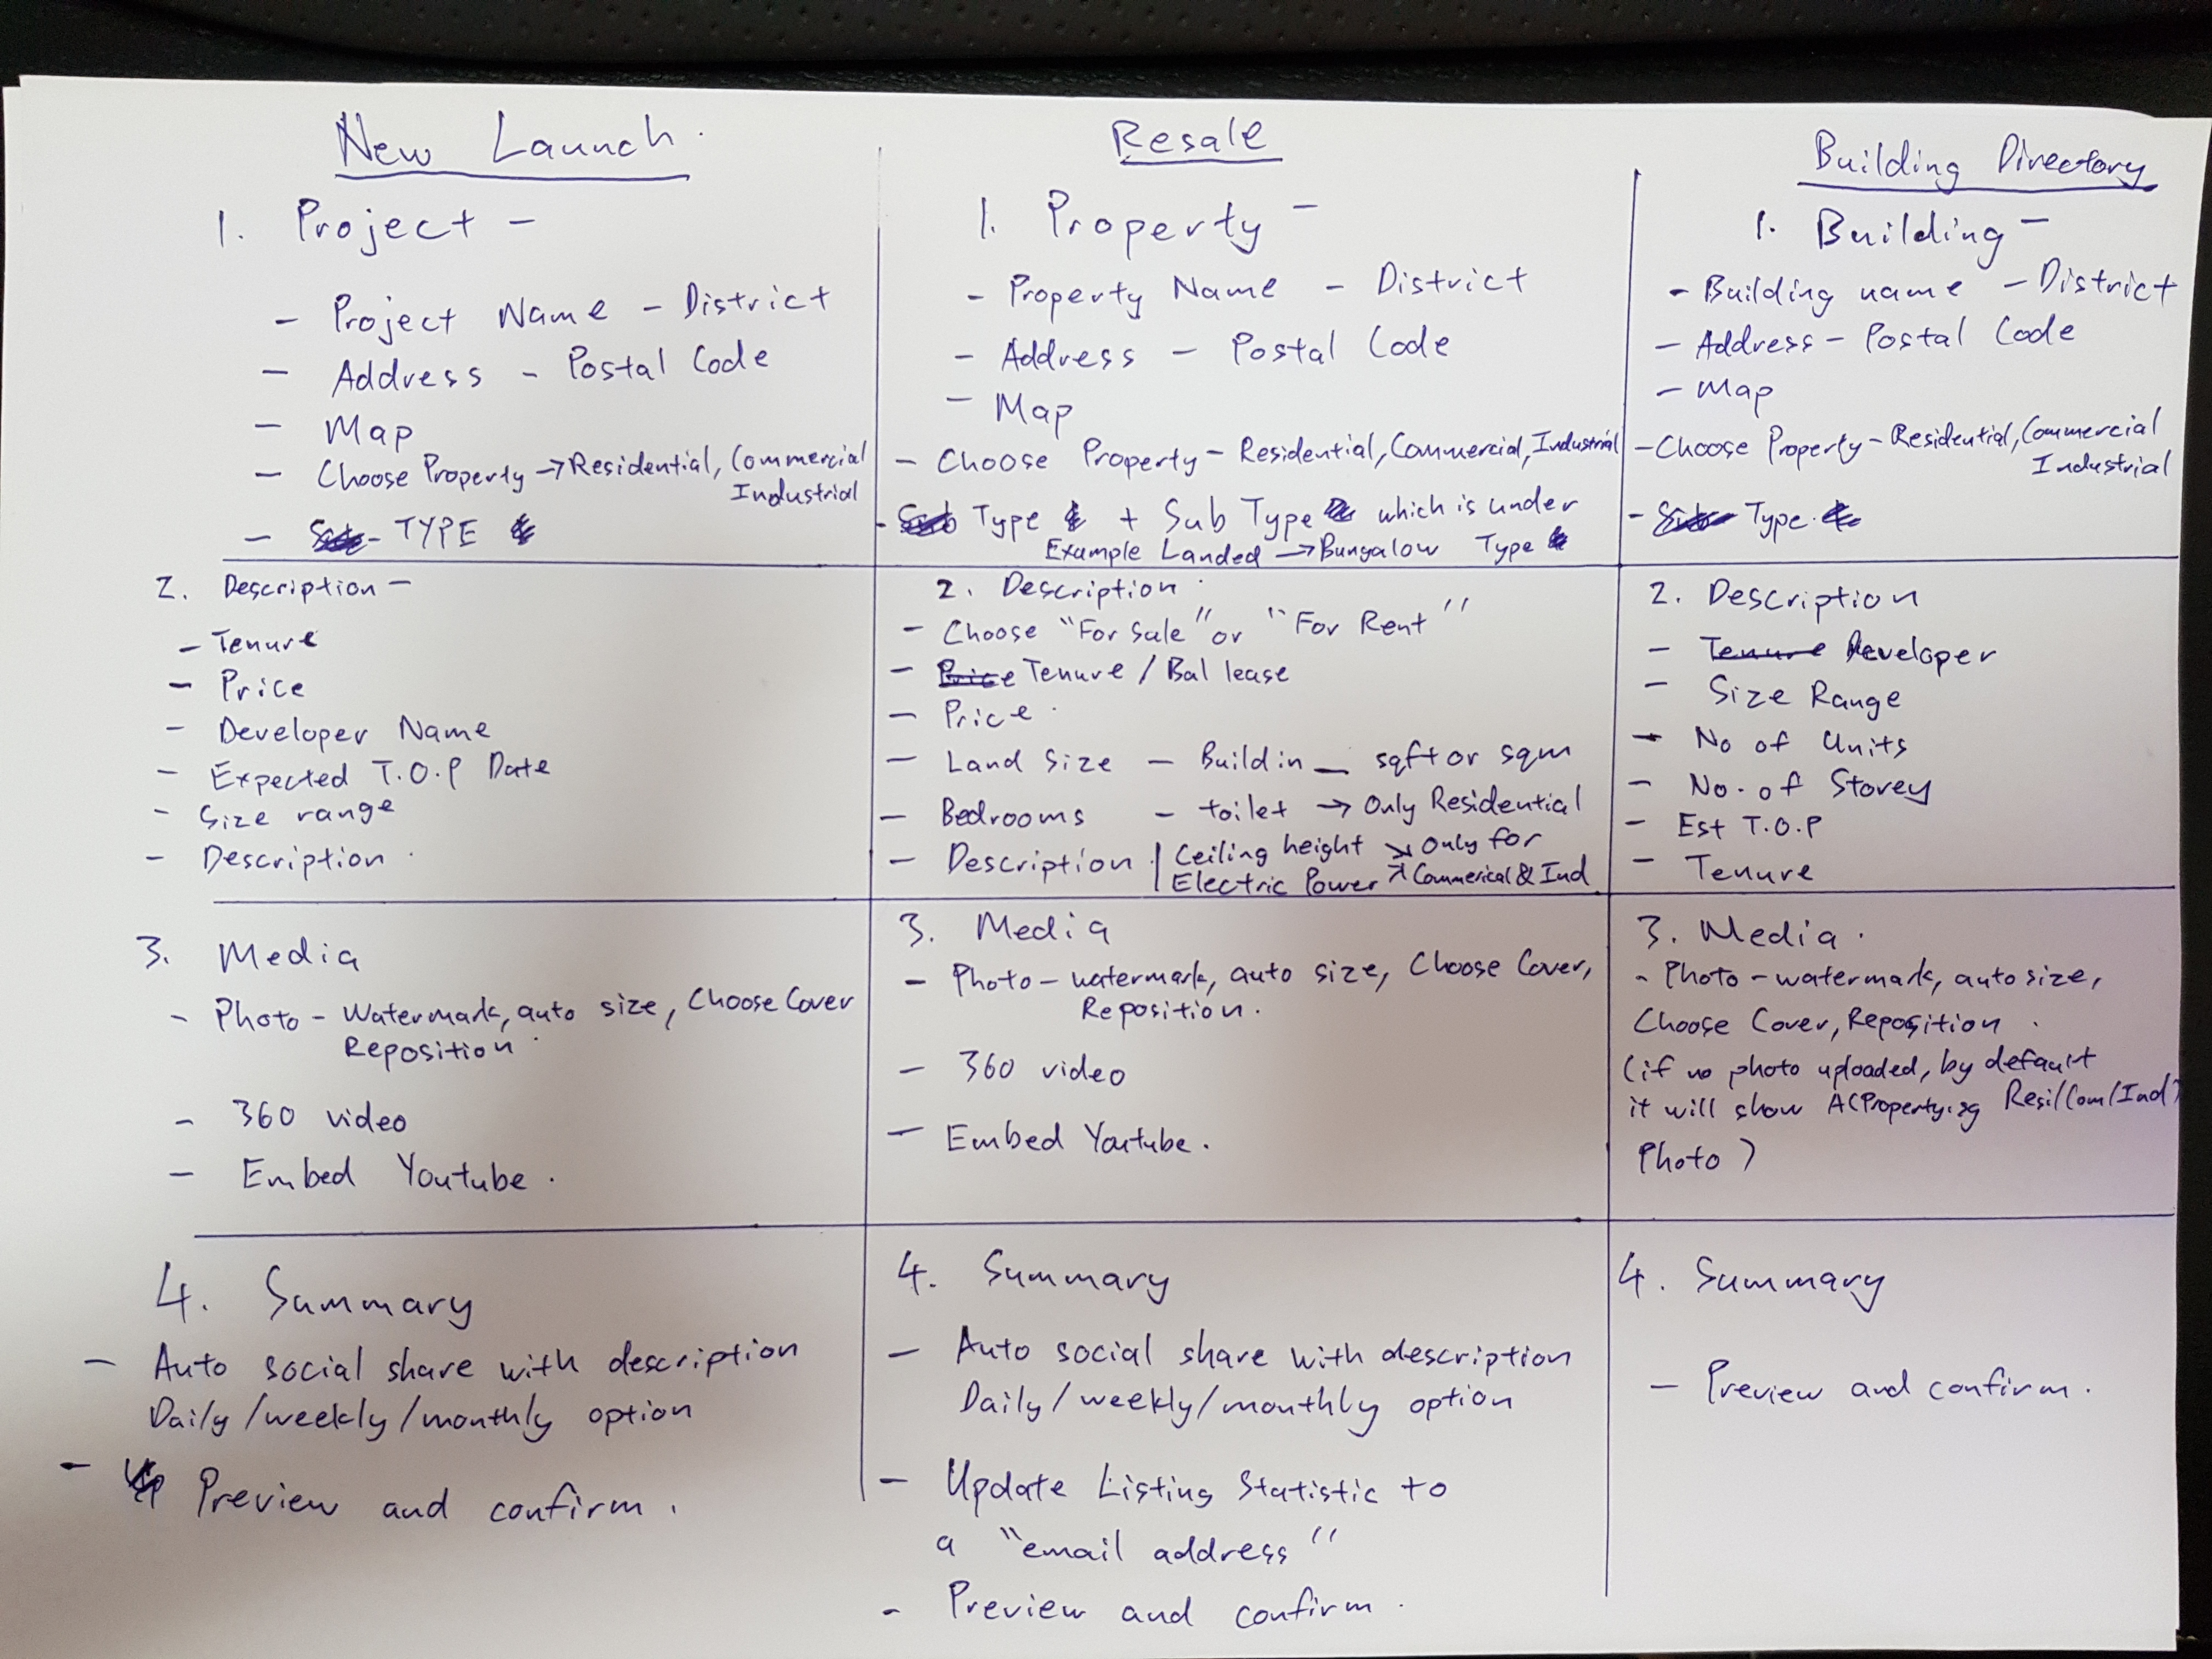 New Launch.
1. Project -
- Project Name - District
- Address - Postal Code
- Map
- Choose Property → Residential, Commercial
Industrial
- TYPE
2. Description -
- Tenure
- Price
- Developer Name
- Expected T.O.P Date
- Size range
- Description.
3. Media
- Photo - Watermark, auto size, Choose Cover
Reposition.
- 360 video
- Embed Youtube.
4. Summary
- Auto social share with description
Daily/weekly/monthly option
- Preview and confirm.
Resale
1. Property -
- Property Name - District
- Address - Postal Code
- Map
- Choose Property - Residential, Commercial, Industrial
- Type + Sub Type which is under
Example Landed → Bungalow Type
2. Description.
- Choose "For Sale" or "For Rent"
- Price Tenure / Bal lease
- Price.
- Land Size - Build in _ sqft or sqm
- Bedrooms - toilet → Only Residential
- Description. | Ceiling height ↘ Only for
Electric Power ↗ Commerical & Ind
3. Media
- Photo - watermark, auto size, Choose Cover,
Reposition.
- 360 video
- Embed Youtube.
4. Summary
- Auto social share with description
Daily/weekly/monthly option
- Update Listing Statistic to
a "email address"
- Preview and confirm.
Building Directory
1. Building -
- Building name - District
- Address - Postal Code
- Map
- Choose Property - Residential, Commercial
Industrial
- Type.
2. Description
- Tenure Developer
- Size Range
- No of Units
- No. of Storey
- Est T.O.P
- Tenure
3. Media.
- Photo - watermark, auto size,
Choose Cover, Reposition.
(if no photo uploaded, by default
it will show ACProperty.sg Resi/Com/Ind)
Photo)
4. Summary
- Preview and confirm.